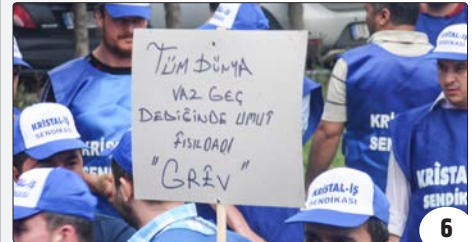 TÜM DÜNYA
VAZ GEÇ
DEDİĞİNDE UMUT
FISILDADI
"GREV"
KRİSTAL-İŞ
SENDİKASI
KRİSTAL-İŞ
SENDİKASI
KRİ
SEN
KRİSTA
SENDİ
6